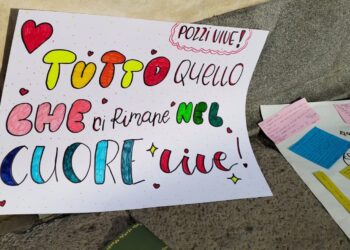 POZZI VIVE!
TUTTO QUELLO
CHE ci Rimane NEL
CUORE vive!